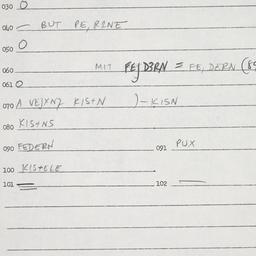 030 O
040 — BUT PE,RINE
050 O
060 MIT FEJD3RN = FE,D3RN (85
061 O
070 A VEJXNZ KIS+N )-KISN
080 KIS+NS
090 FEDERN 091 PUX
100 KIS+ELE
101 102